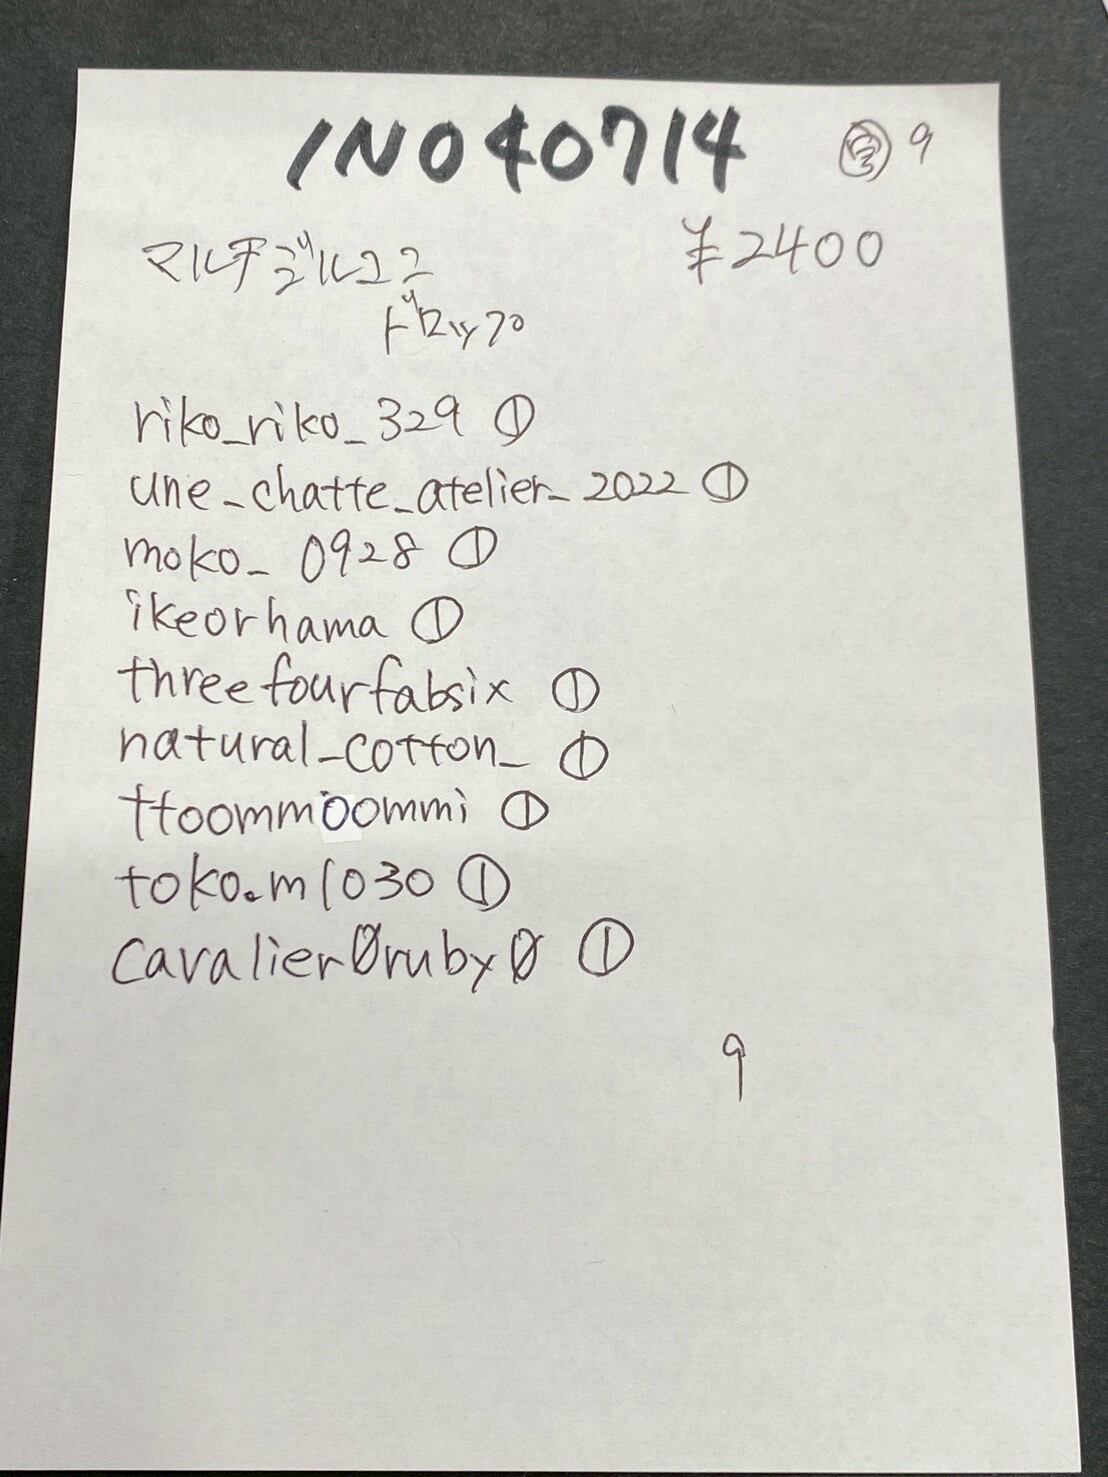 INO40714 9
マルチジルコニ ¥2400
ドロップ
riko_riko_329 ①
une_chatte_atelier_2022 ①
moko_0928 ①
ikeorhama ①
threefourfabsix ①
natural_cotton_ ①
ttoommioommi ①
toko.m1030 ①
cavalier0ruby0 ①
9